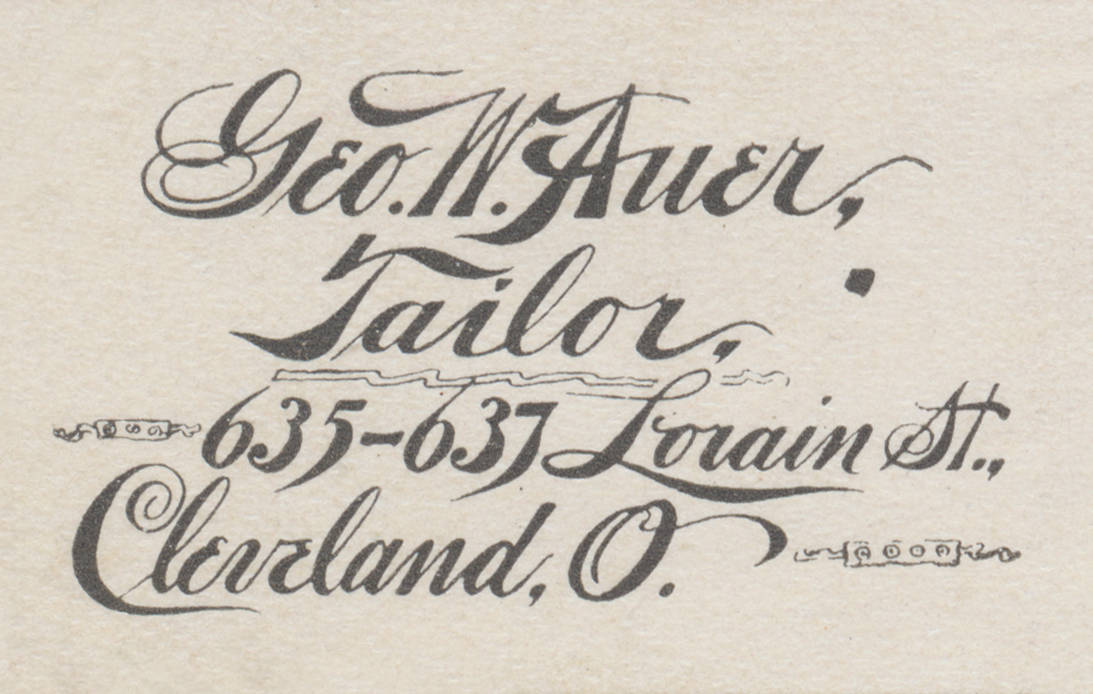 Geo. W. Auer,
Tailor,
635-637 Lorain St.,
Cleveland, O.